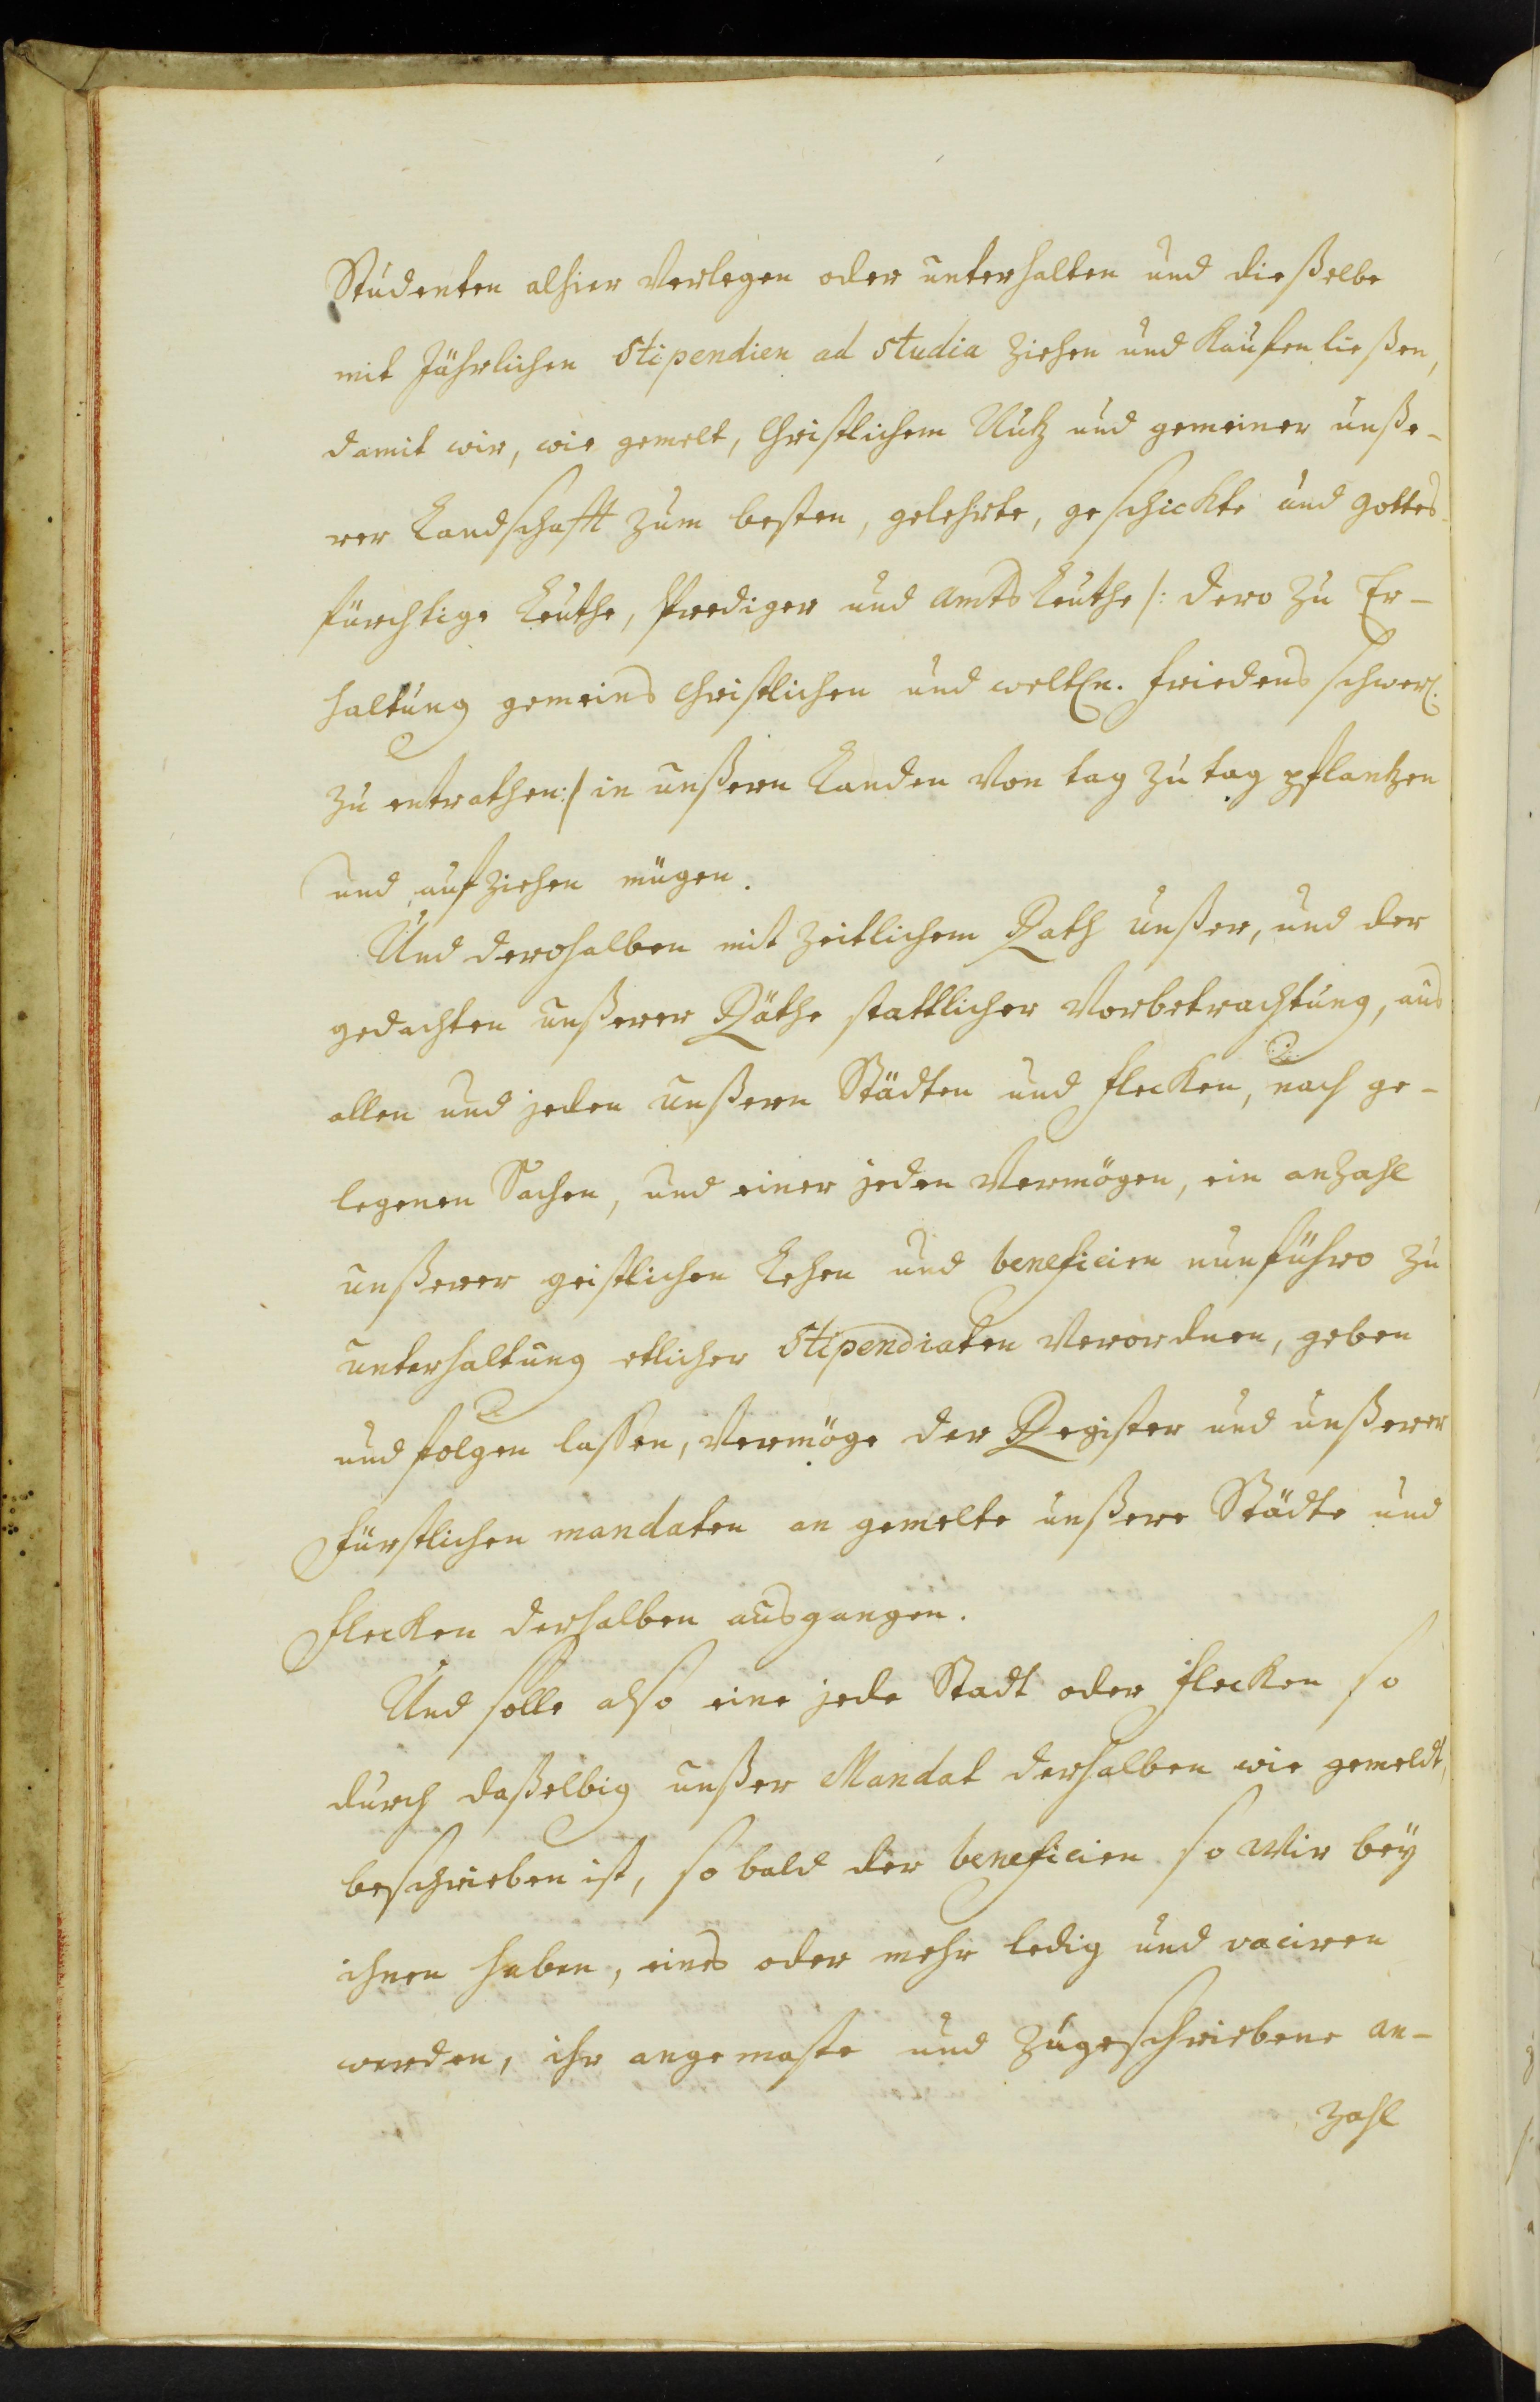 Studenten alhier Verlegen oder unterhalten und dießelbe
mit Jährlichen Stipendien ad studia ziehen und kaufen ließen,
damit wir, wie gemelt, Christlichem Nutz und gemeiner unße-
rer Landschafft zum besten, gelehrte, geschickte und gottes-
fürchtige Leuthe, Prediger und Amts Leuthe /: dero zu Er-
haltung gemeins Christlichen und weltln. friedens schwerl.
zu entrathen:/ in unßern Landen Von tag zu tag pflantzen
und aufziehen mügen.
Und derohalben mit zeitlichem Rath unßer, und der
gedachten unßerer Räthe stattlicher Vorbetrachtung, aus
allen und jeden unßern Städten und flecken, nach ge-
legenen Sachen, und einer jeden Vermögen, ein anzahl
unßerer geistlichen Lehen und beneficien nunführo zu
unterhaltung etlicher Stipendiaten Verordnen, geben
und folgen laßen, Vermöge der Register und unßerer
fürstlichen mandaten an gemelte unßere Städte und
flecken derhalben ausgangen.
Und solle also eine jede Stadt oder flecken so
durch daßelbig unßer Mandat derhalben wie gemeldt,
beschrieben ist, so bald der beneficien so Wir bey
ihnen haben, eines oder mehr ledig und vaciren
werden, ihr angemaste und zugeschriebene an-
zahl